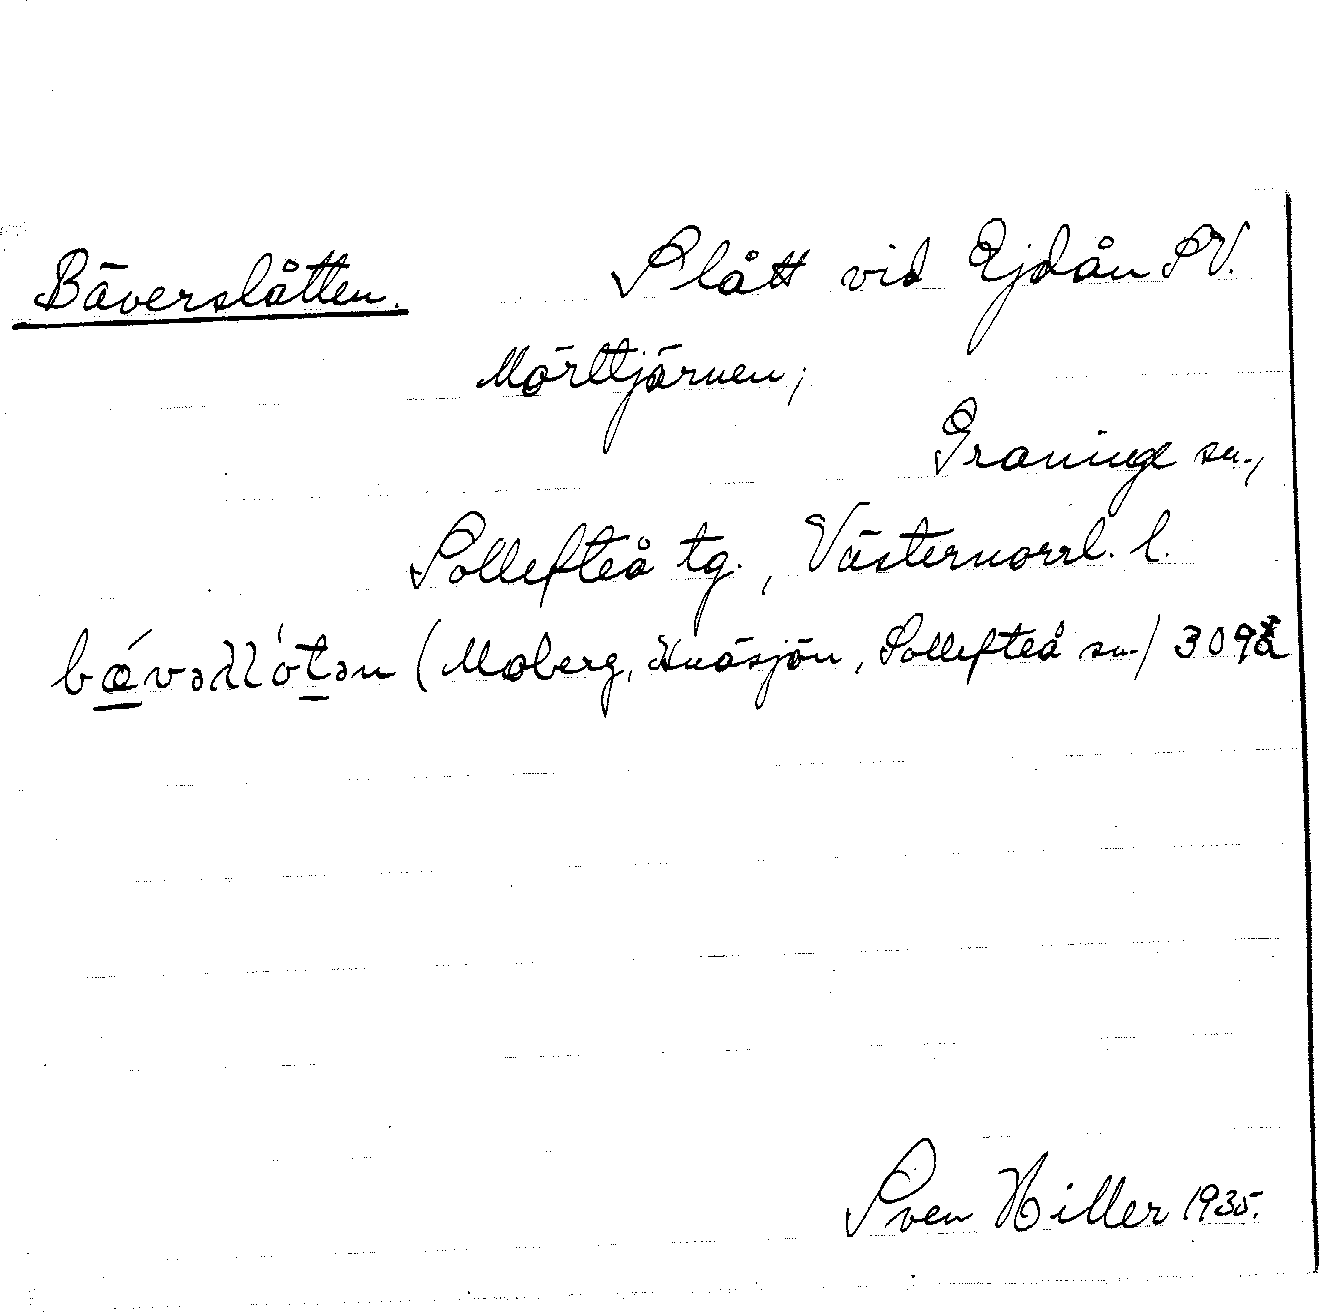 Bäverslåtten. Slått vid Ejdån SV.
Mörttjärnen;
Graninge sn.,
Sollefteå tg., Västernorrl. l.
(Moberg, Knäsjön, Sollefteå sn.) 309
Sven Hiller 1935.